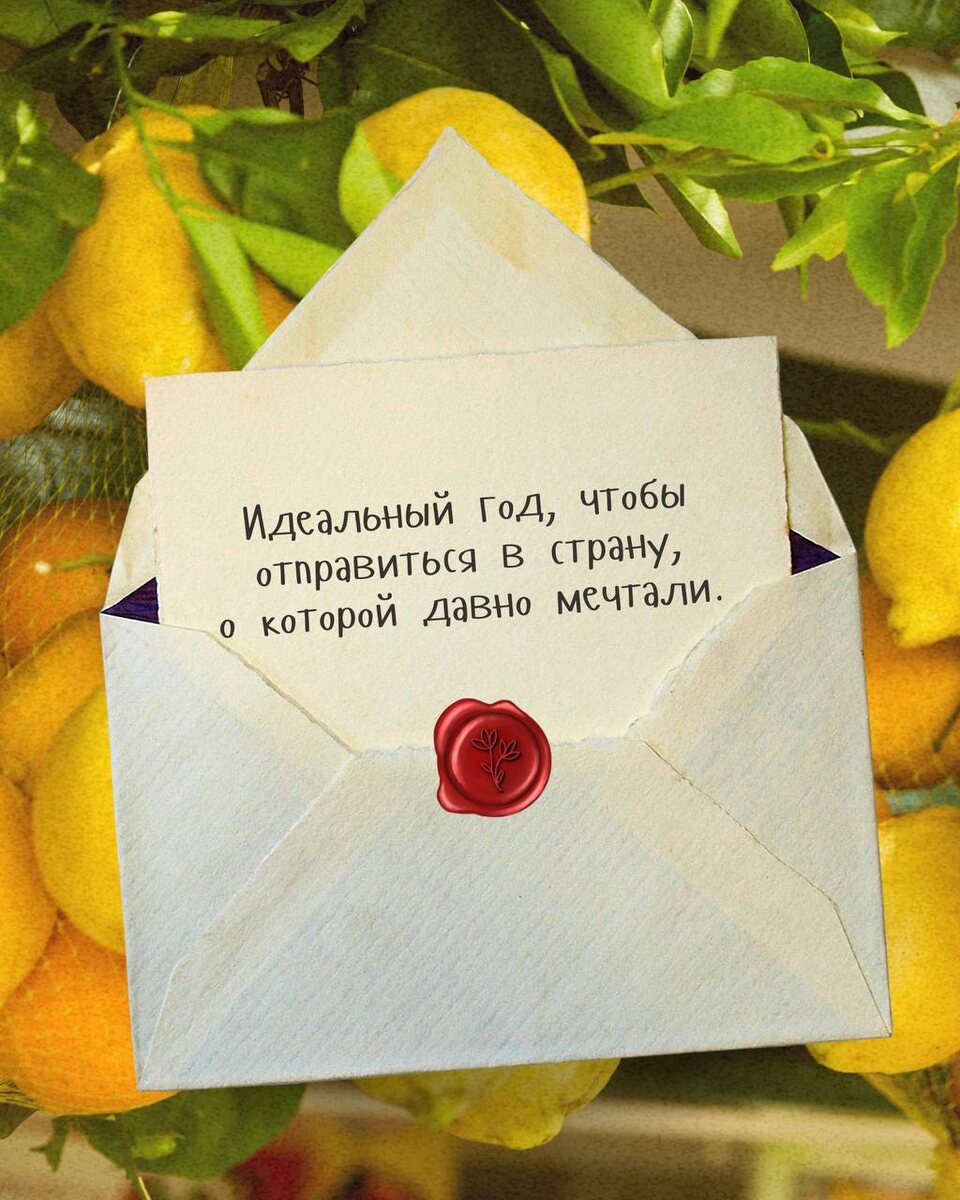 Идеальный год, чтобы
отправиться в страну,
о которой давно мечтали.